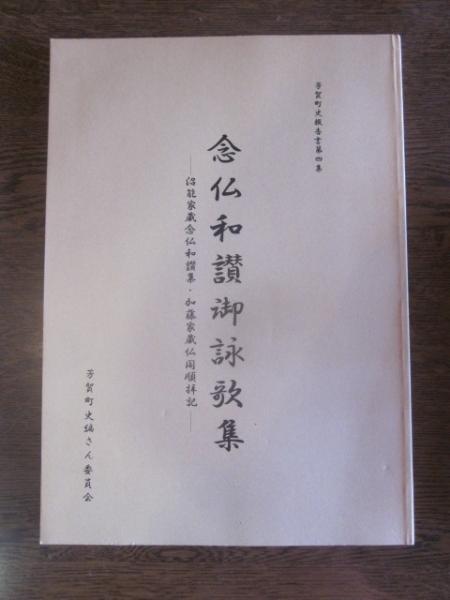 芳賀町史報告書第四集
念仏和讃御詠歌集
―沼能家蔵念仏和讃集・加藤家蔵仏閣順拝記―
芳賀町史編さん委員会